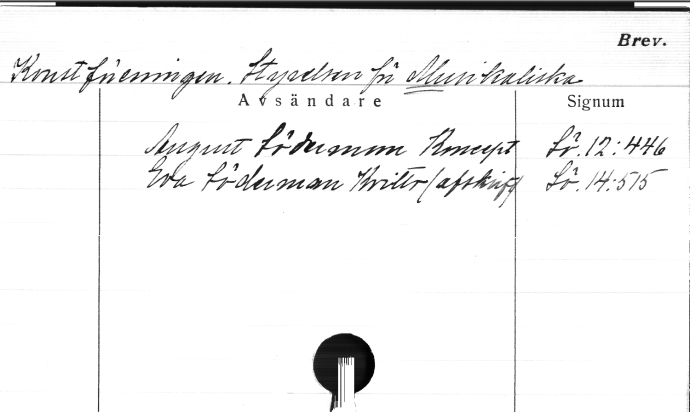 Brev.
Konstföreningen. Styrelsen för Musikaliska
Avsändare Signum
August Söderman Koncept Sö. 12:446
Eva Söderman Kvitto (afskrift) Sö. 14:515